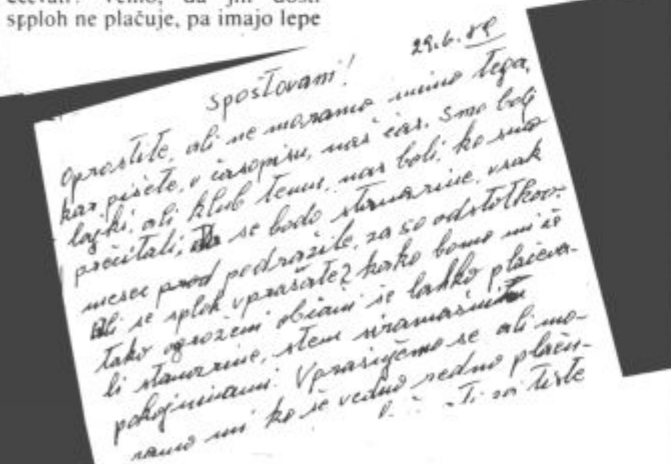 sploh ne plačuje, pa imajo lepe
29.6.89
Spostovani!
Oprostite, ali ne moramo mimo tega,
kar pišete, v časopisu, naš čas. Smo bolj
lajki, ali klub temu, nas boli, ko smo
prečitali, da se bodo stanarine, vsak
mesec pred podražile, za 50 odstotkov.
Ali se sploh vprašate? kako bomo mi še
tako ogroženi občani še lahko plačeva-
li stanarine, stem
pokojninami. Vprasujemo se ali mo-
ramo mi ko še vedno redno plaču-
za tiste